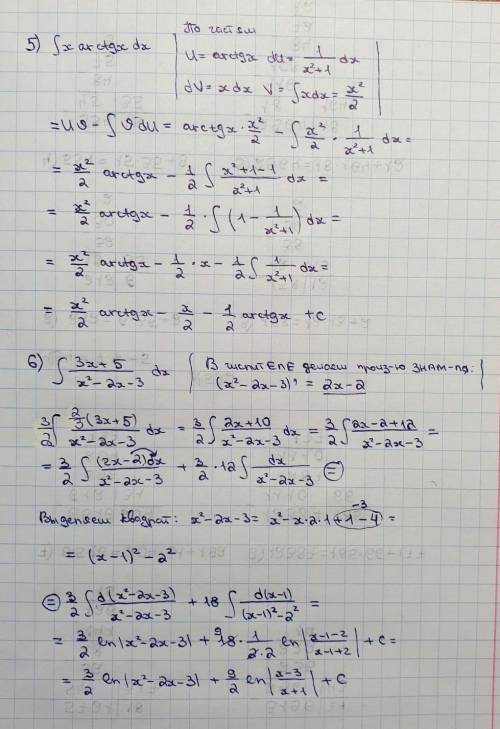 По частям
5) ∫ x arctgx dx | U = arctgx dU = 1/(x²+1) dx
dV = x dx V = ∫xdx = x²/2
= Uϑ - ∫ϑdU = arctgx · x²/2 - ∫ x²/2 · 1/(x²+1) dx =
= x²/2 arctgx - 1/2 ∫ (x²+1-1)/(x²+1) dx =
= x²/2 arctgx - 1/2 · ∫ (1 - 1/(x²+1)) dx =
= x²/2 arctgx - 1/2 · x - 1/2 ∫ 1/(x²+1) dx =
= x²/2 arctgx - x/2 - 1/2 arctgx + C
6) ∫ (3x+5)/(x²-2x-3) dx | В числитЕЛЕ делаем произ-ю ЗНАМ-ля:
(x²-2x-3)' = 2x-2
3/2 ∫ (2/3(3x+5))/(x²-2x-3) dx = 3/2 ∫ (2x+10)/(x²-2x-3) dx = 3/2 ∫ (2x-2+12)/(x²-2x-3) =
= 3/2 ∫ ((2x-2)dx)/(x²-2x-3) + 3/2 · 12 ∫ dx/(x²-2x-3) =
Выделяем квадрат: x²-2x-3 = x²-x·2·1+1-4 =
-3
= (x-1)² - 2²
= 3/2 ∫ d(x²-2x-3)/(x²-2x-3) + 18 ∫ d(x-1)/((x-1)²-2²) =
= 3/2 ln|x²-2x-3| + 18 · 1/(2·2) ln|(x-1-2)/(x-1+2)| + C =
9
= 3/2 ln|x²-2x-3| + 9/2 ln|(x-3)/(x+1)| + C